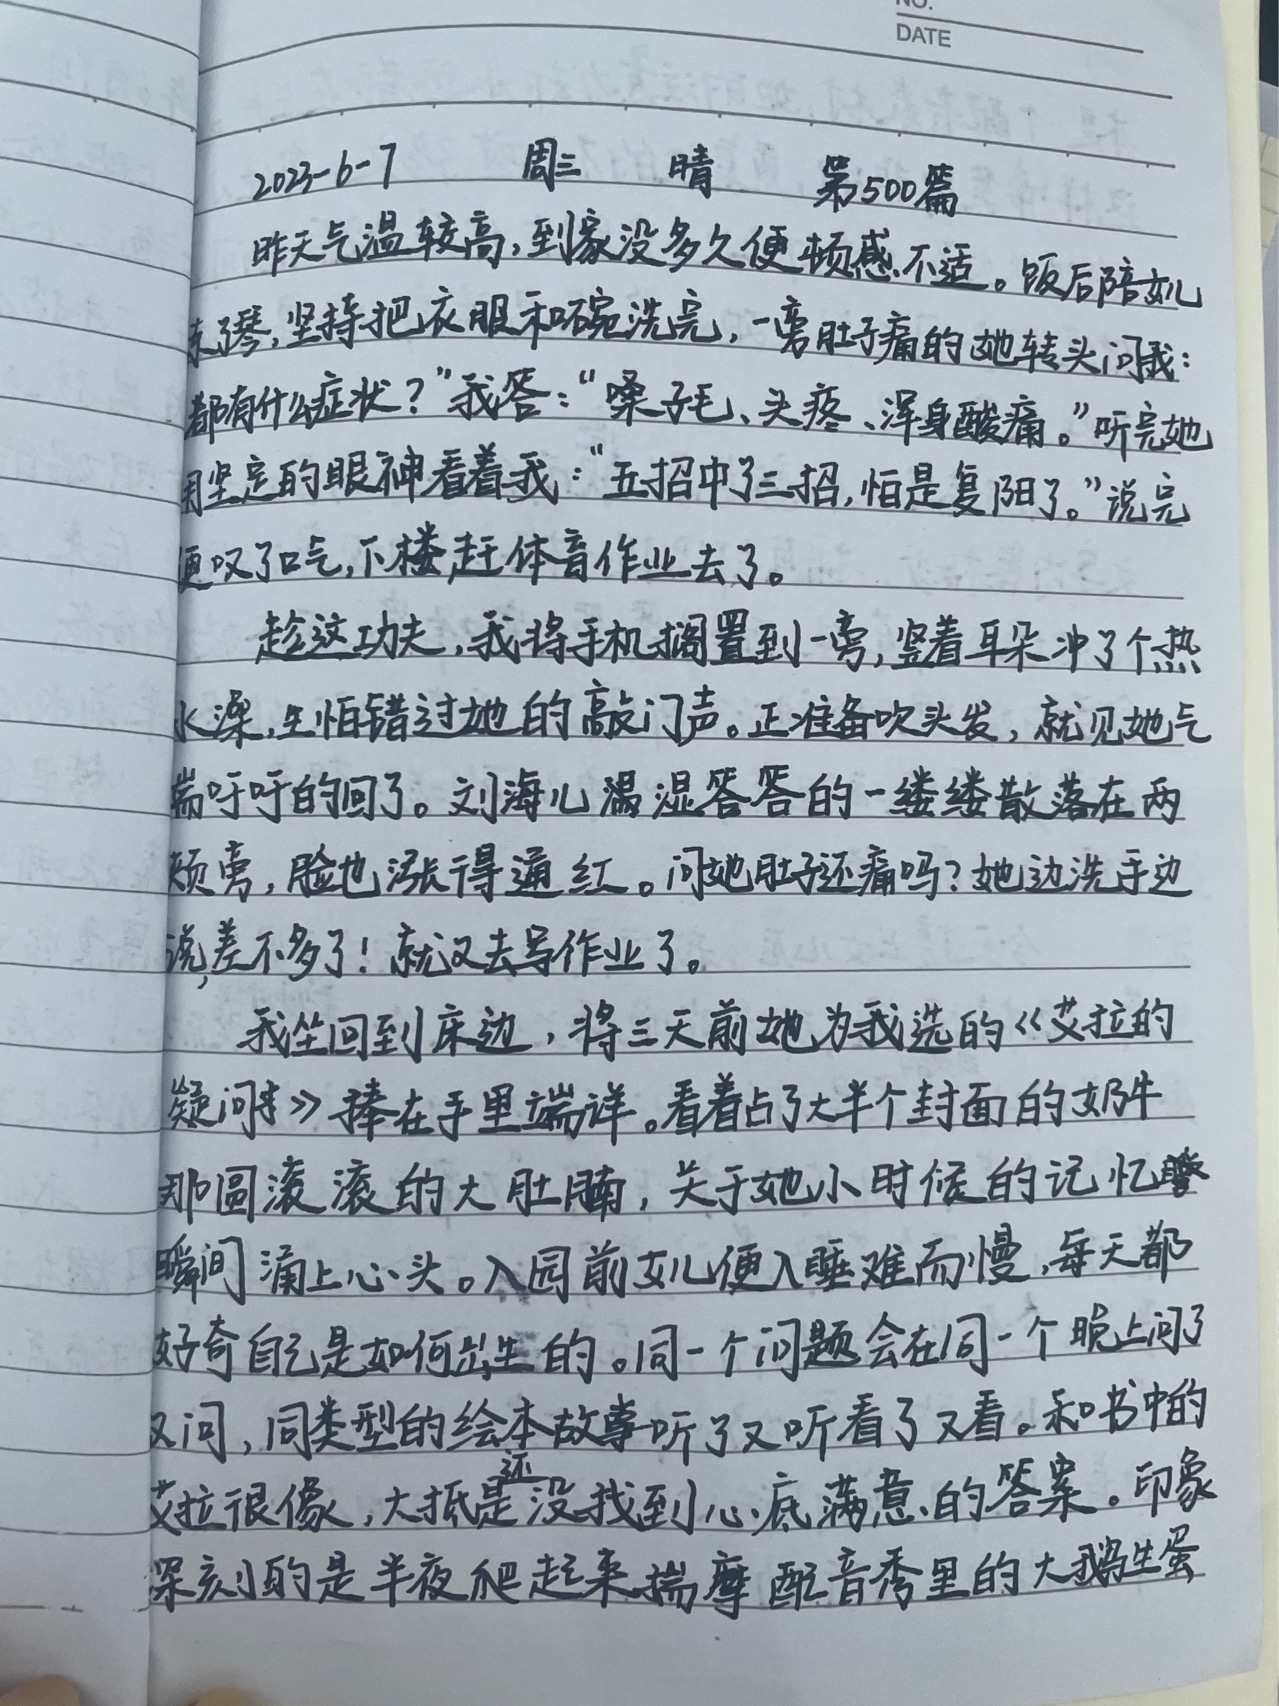 NO.
DATE
2023-6-7 周三 晴 第500篇
昨天气温较高,到家没多久便顿感不适。饭后陪女儿
练琴,坚持把衣服和碗洗完,一旁肚子痛的她转头问我:
都有什么症状?”我答:“嗓子毛、头疼、浑身酸痛。”听完她
用坚定的眼神看着我:“五招中了三招,怕是复阳了。”说完
便叹了口气,下楼赶体育作业去了。
趁这功夫,我将手机搁置到一旁,竖着耳朵冲了个热
水澡,生怕错过她的敲门声。正准备吹头发,就见她气
喘吁吁的回了。刘海儿湿答答的一缕缕散落在两
颊旁,脸也涨得通红。问她肚子还痛吗?她边洗手边
说,差不多了!就又去写作业了。
我坐回到床边,将三天前她为我选的《艾拉的
疑问》捧在手里端详。看着占了大半个封面的奶牛
那圆滚滚的大肚腩,关于她小时候的记忆
瞬间涌上心头。入园前女儿便入睡难而慢,每天都
好奇自己是如何出生的。同一个问题会在同一个晚上问了
又问,同类型的绘本故事听了又听看了又看。和书中的
艾拉很像,大抵是还没找到心底满意的答案。印象
深刻的是半夜爬起来揣摩配音秀里的大鹅生蛋